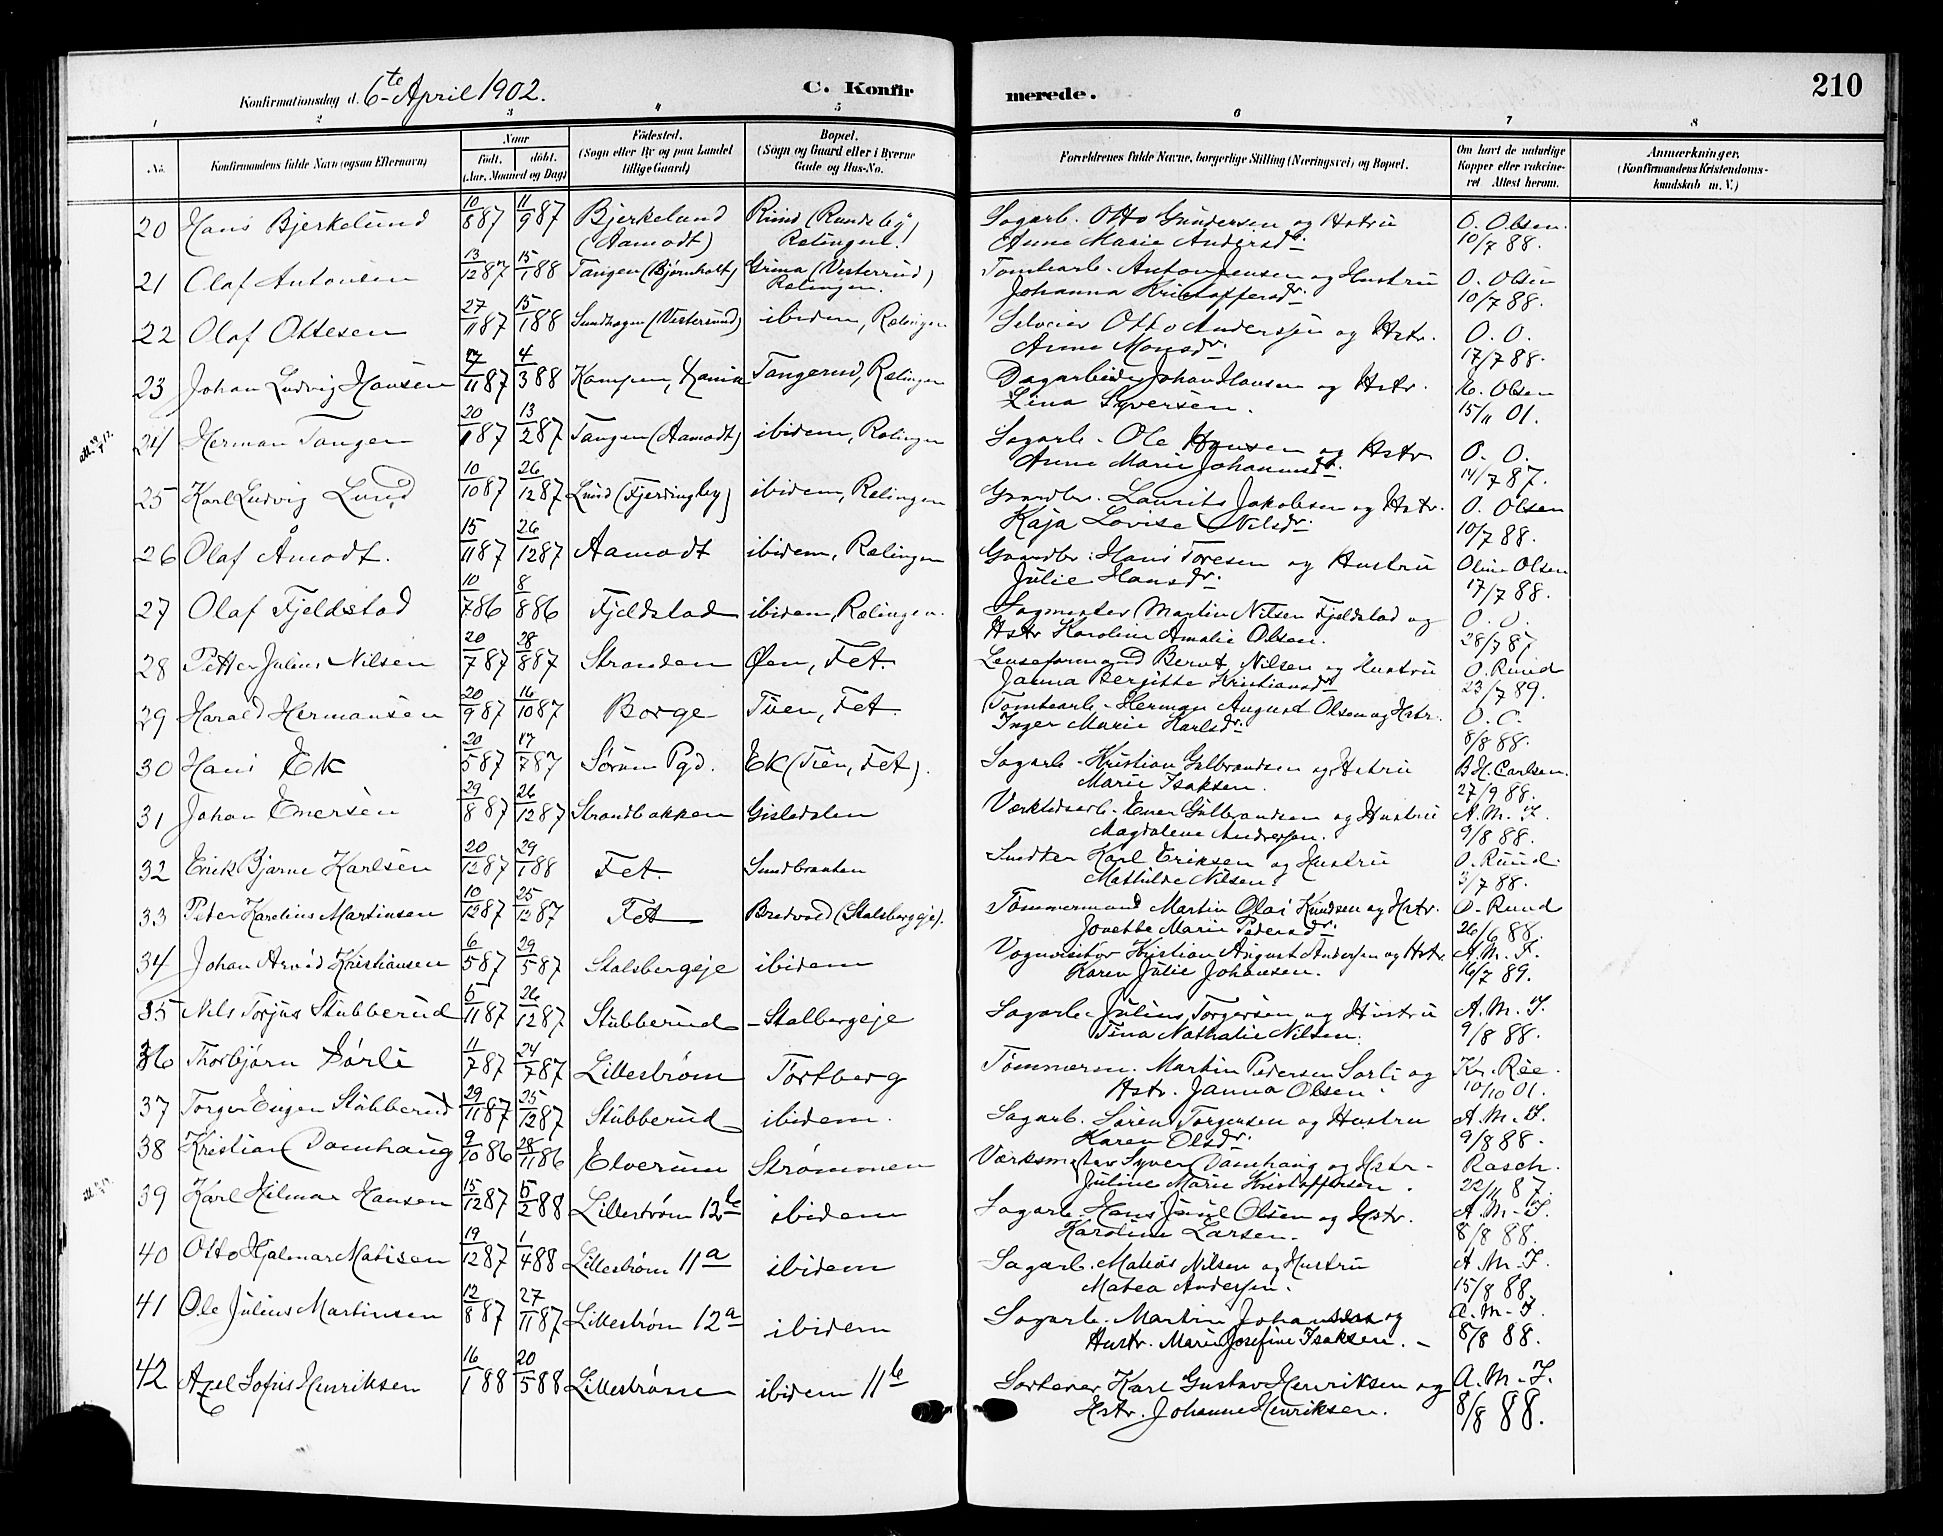 Konfirmationsdag d. 6te April 1902.
C. Konfirmerede.
210
1 2 3 4 5 6 7 8
No.
Konfirmandens fulde Navn (ogsaa Efternavn)
Naar
født. døbt.
(Aar, Maaned og Dag)
Fødested.
(Sogn eller By og paa Landet
tillige Gaard)
Bopæl.
(Sogn og Gaard eller i Byerne
Gade og Hus-No.
Forældrenes fulde Navne, borgerlige Stilling (Næringsvei) og Bopæl.
Om havt de naturlige
Kopper eller vakcine-
ret Attest herom.
Anmærkninger.
(Konfirmandens Kristendoms-
kundskab m. V.)
20 Hans Bjerkelund 10/8 87 11/9 87 Bjerkelund (Aamodt) Rund (Rundeby) Rælingen. Sagarb. Otto Gundersen og Hstru Anne Marie Andersdr. O. Olsen. 10/7 88.
21 Olaf Antonsen 13/12 87 15/1 88 Tangen (Bjørnholt) Grina (Vesterrud) Rælingen. Tomtearb. Anton Jensen og Hustru Johanna Kristoffersdr. O. Olsen 10/7 88.
22 Olaf Ottesen 27/11 87 15/1 88 Sundhagen (Vesterrud) ibidem, Rælingen Selveier Otto Andersen og Hstr. Anne Monsdr. O. O. 17/7 88.
23 Johan Ludvig Hansen 17/11 87 4/3 88 Kampen, Tangerud, Rælingen Dagarbeider Johan Hansen og Hstr. Lina Syversen. K. Olsen 15/11 01.
24 Herman Tangen 20/1 87 13/2 87 Tangen (Aamodt) ibidem, Rælingen Sagarb. Ole Hansen og Hstr Anne Marie Johannesdr. O. O. 14/7 87.
25 Karl Ludvig Lund 10/10 87 26/12 87 Lund (Fjerdingby) ibidem, Rælingen Gaardbr. Laurits Jakobsen og Hstr. Kaja Lovise Nilsdr. O. Olsen 10/7 88.
26 Olaf Åmodt. 15/11 87 26/12 87 Aamodt ibidem, Rælingen Gaardbr. Hans Toresen og Hustru Julie Hansdr. Oline Olsen 17/7 88.
27 Olaf Fjeldstad 10/7 86 8/8 86 Fjeldstad ibidem, Rælingen. Sagmester Martin Nilsen Fjeldstad og Hstr Karoline Amalie Olsen. O. O. 28/7 87
28 Petter Julius Nilsen 20/7 87 28/8 87 Stranden Øen, Fet. Lenseformand Bernt Nilsen og Hustru Janna Bergitte Kristiansdr O. Ruud 23/7 89.
29 Harald Hermansen 20/9 87 16/10 87 Borge Tuen, Fet. Tomtearb. Herman August Olsen og Hstr. Inger Marie Karlsdr. O. O. 8/8 88.
30 Hans Ek 20/5 87 17/7 87 Sørum Pgd. Ek (Tien, Fet). Sagarb. Kristian Gulbrandsen og Hstru Marie Isaksen. B. H. Carlsen. 27/9 88.
31 Johan Enersen 29/8 87 26/12 87 Strandbakken Gisledalen Værkstedsarb. Ener Gulbrandsen og Hustru Magdalene Andersen. A. M. F. 9/8 88.
32 Erik Bjarne Karlsen 20/12 87 29/1 88 Fet. Sundbraaten Snedker Karl Eriksen og Hustru Mathilde Nilsen. O. Ruud. 3/7 88.
33 Peter Karelius Martinsen 10/12 87 25/12 87 Fet Bredvold (Stalsbergeje). Tømmermand Martin Olai Knudsen og Hstr. Jonette Marie Pedersdr. O. Ruud 26/6 88.
34 Johan Arvid Kristiansen 6/5 87 29/5 87 Stalsbergeje ibidem Vognvisitør Kristian August Andersen og Hstr Karen Julie Johansen. A. M. F. 16/7 89.
35 Nils Torjus Stubberud 5/11 87 26/12 87 Stubberud Stalbergeje Sagarb. Julius Torgersen og Hustru Tina Nathalie Nilsen. A. M. F. 9/8 88.
36 Thorbjørn Sørli 11/7 87 24/7 87 Lillestrøm Tortberg Tømmerm. Martin Pedersen Sørli og Hstr. Janna Olsen Kr. Røe. 10/10 01.
37 Torger Eugen Stubberud 29/11 87 25/12 87 Stubberud ibidem. Sagarb. Søren Torgersen og Hustru Karen Olsdr. A. M. F. 9/8 88.
38 Kristian Damhaug 9/10 86 28/11 86 Elverum Strømmen Værksmester Syver Damhaug og Hstr. Juline Marie Kristoffersen. Rasch. 22/11 87.
39 Karl Hilmar Hansen 15/12 87 5/2 88 Lillestrøm 12b ibidem Sagarb. Hans Juul Olsen og Hstr. Karoline Larsen. A. M. F. 8/8 88.
40 Otto Hjalmar Matisen 19/12 87 1/4 88 Lillestrøm 11a ibidem Sagarb. Matias Nilsen og Hustru Matea Andersen. A. M. F. 15/8 88.
41 Ole Julius Martinsen 12/8 87 27/11 87 Lillestrøm 12a ibidem Sagarb. Martin Johansen og Hustr. Marie Josefine Isaksen. A. M. F. 8/8 88.
42 Axel Sofus Henriksen 16/1 88 20/5 88 Lillestrøm ibidem 11b Sorterer Karl Gustav Henriksen og Hstr. Johanne Henriksen. A. M. F. 8/8 88.